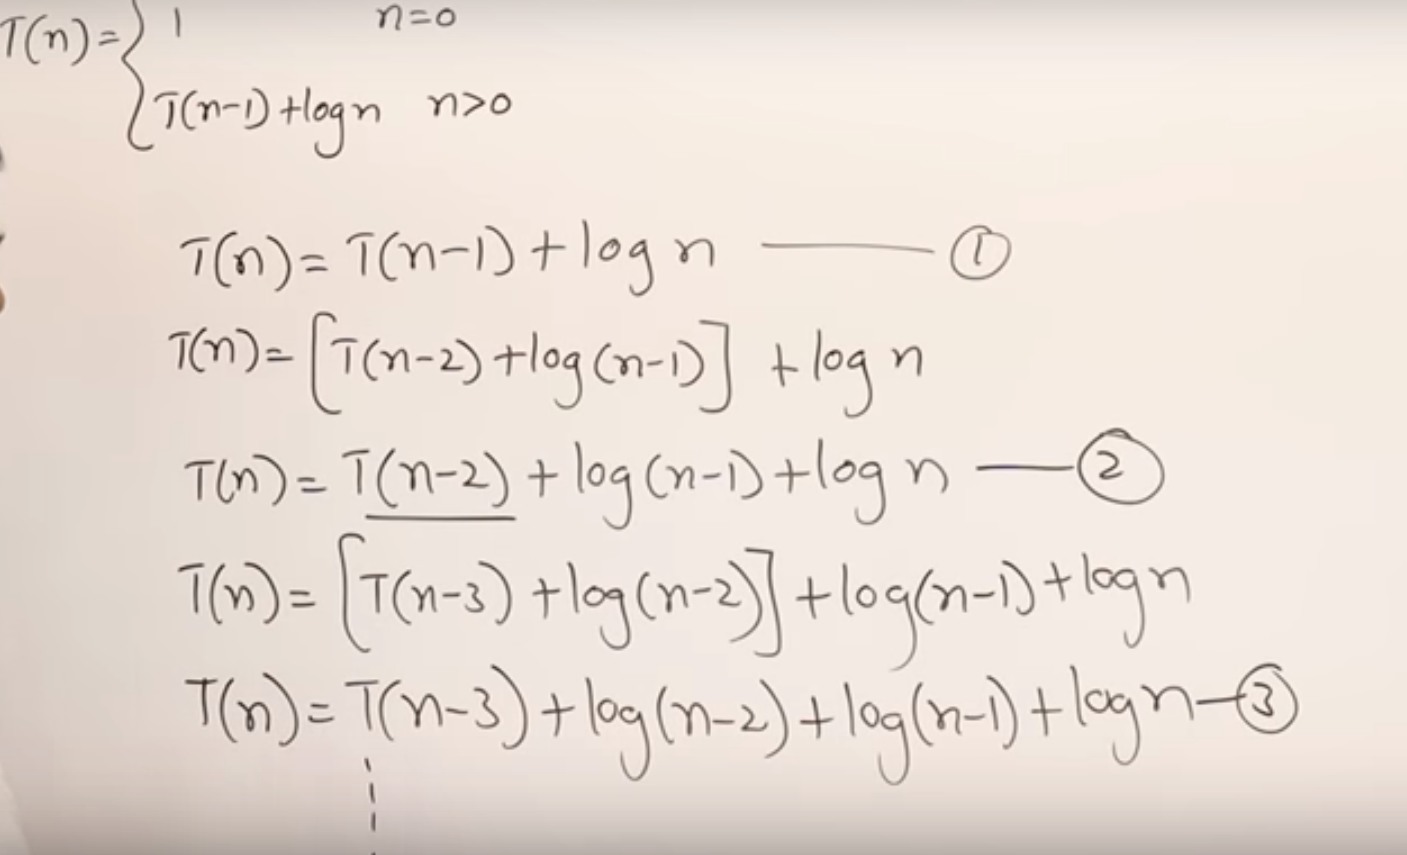 T(n)= { 1 n=0
T(n-1)+logn n>0
T(n)= T(n-1)+log n —— ①
T(n)= [T(n-2)+log(n-1)] +log n
T(n)= T(n-2)+log(n-1)+log n — ②
T(n)= [T(n-3)+log(n-2)]+log(n-1)+logn
T(n)= T(n-3)+log(n-2)+log(n-1)+logn-③